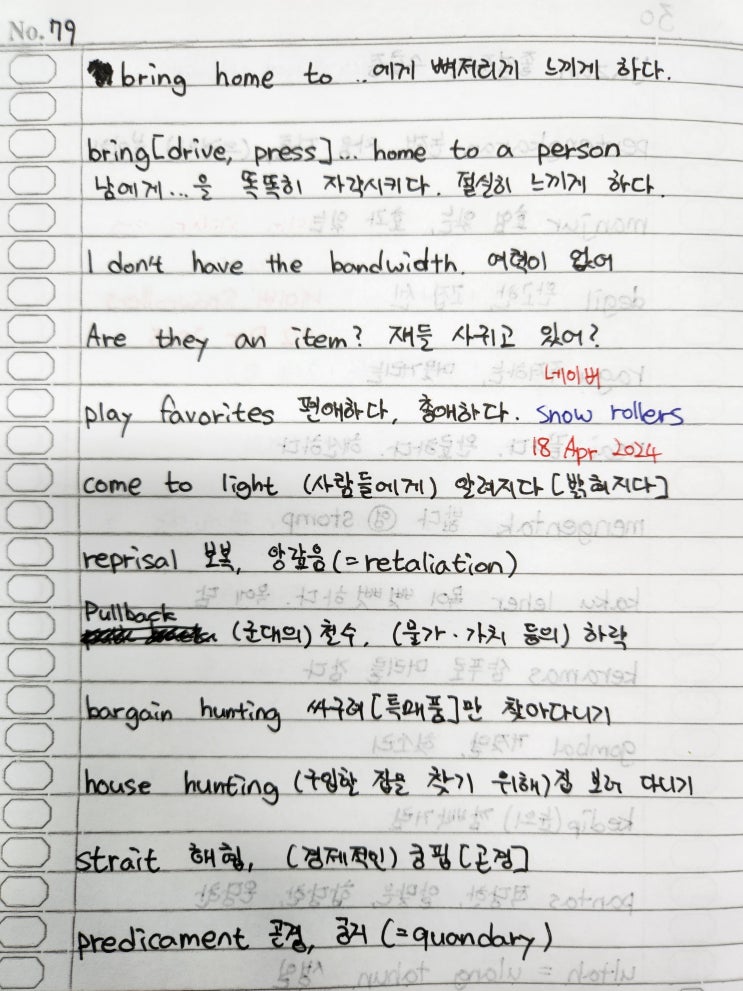 No. 79
bring home to ..에게 뼈저리게 느끼게 하다.
bring[drive, press]... home to a person
남에게...을 똑똑히 자각시키다. 절실히 느끼게 하다.
I don't have the bandwidth. 여력이 없어
Are they an item? 쟤들 사귀고 있어?
네이버
play favorites 편애하다, 총애하다. snow rollers
18 Apr 2024
come to light (사람들에게) 알려지다 [밝혀지다]
reprisal 보복, 앙갚음(=retaliation)
Pullback
(군대의) 철수, (물가·가치 등의) 하락
bargain hunting 싸구려[특매품]만 찾아다니기
house hunting (구입할 집을 찾기 위해)집 보러 다니기
strait 해협, (경제적인) 궁핍[곤경]
predicament 곤경, 궁지 (=quandary)